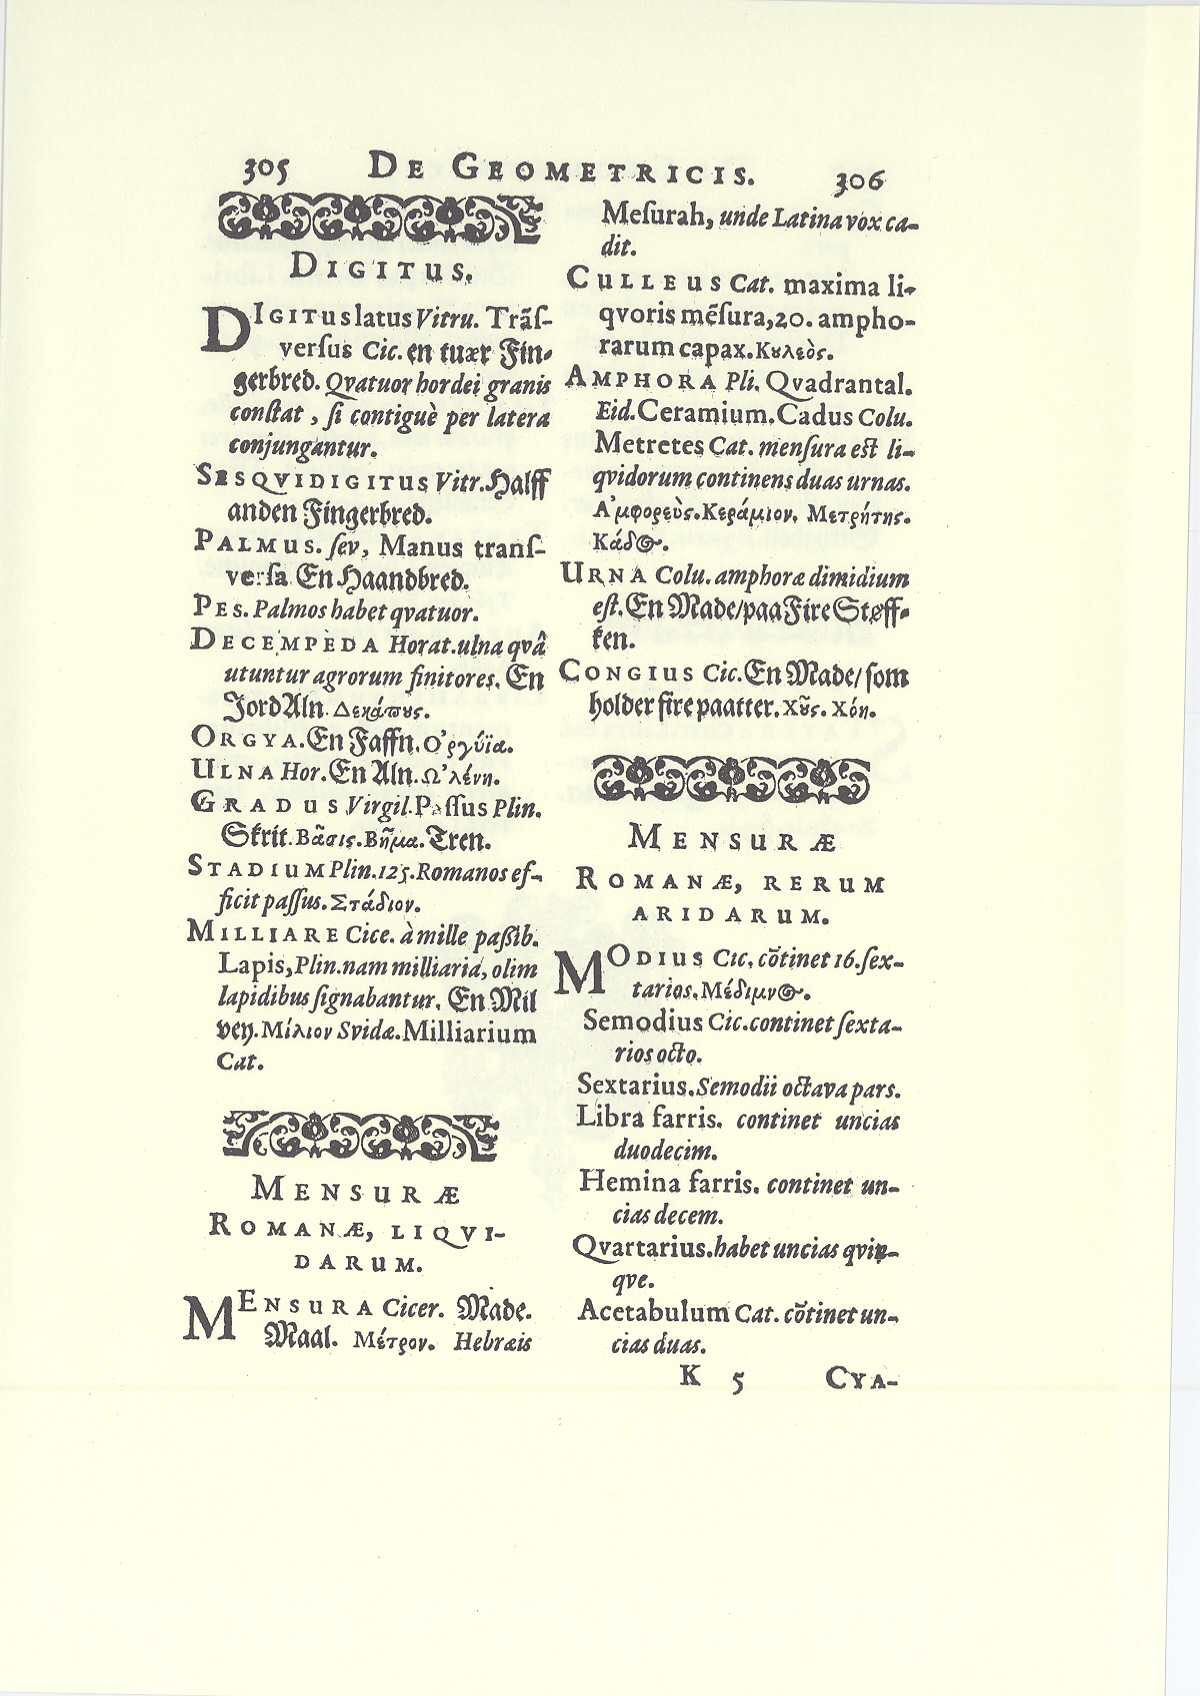 305 DE GEOMETRICIS. 306
DIGITUS.
DIGITUS latus Vitru. Trãſ-
verſus Cic. en tuær Fin-
gerbred. Qvatuor hordei granis
conſtat, ſi contiguè per latera
conjungantur.
SESQVIDIGITUS Vitr. Halff
anden Fingerbred.
PALMUS. ſev, Manus tranſ-
verſa En Haandbred.
PES. Palmos habet qvatuor.
DECEMPEDA Horat. ulna qvâ
utuntur agrorum finitores. En
Jord Aln. Δεκάπους.
ORGYA. En Faffn. Ο’ργύϊα.
ULNA Hor. En Aln. Ω’λένη.
GRADUS Virgil. Paſſus Plin.
Skrit. Βᾶσις. Βῆμα. Tren.
STADIUM Plin. 125. Romanos ef-
ficit paſſus. Στάδιον.
MILLIARE Cice. à mille paßib.
Lapis, Plin. nam milliaria, olim
lapidibus ſignabantur. En Mil
vey. Μίλιον Svidæ. Milliarium
Cat.
MENSURÆ
ROMANÆ, LIQVI-
DARUM.
MENSURA Cicer. Made.
Maal. Μέτρον. Hebræis
Meſurah, unde Latina vox ca-
dit.
CULLEUS Cat. maxima li-
qvoris mẽſura, 20. ampho-
rarum capax. Κȣλεὸς.
AMPHORA Pli. Qvadrantal.
Eid. Ceramium. Cadus Colu.
Metretes Cat. menſura eſt li-
qvidorum continens duas urnas.
Α’μφορεὺς. Κεράμιον. Μετρήτης.
Κάδος.
URNA Colu. amphoræ dimidium
eſt. En Made/ paa Fire Støff-
ken.
CONGIUS Cic. En Made/ ſom
holder fire paatter. Χȣ͂ς. Χόη.
MENSURÆ
ROMANÆ, RERUM
ARIDARUM.
MODIUS Cic. cõtinet 16. ſex-
tarios. Μέδιμνος.
Semodius Cic. continet ſexta-
rios octo.
Sextarius. Semodii octava pars.
Libra farris. continet uncias
duodecim.
Hemina farris. continet un-
cias decem.
Qvartarius. habet uncias qvin-
qve.
Acetabulum Cat. cõtinet un-
cias duas.
K 5 CYA-